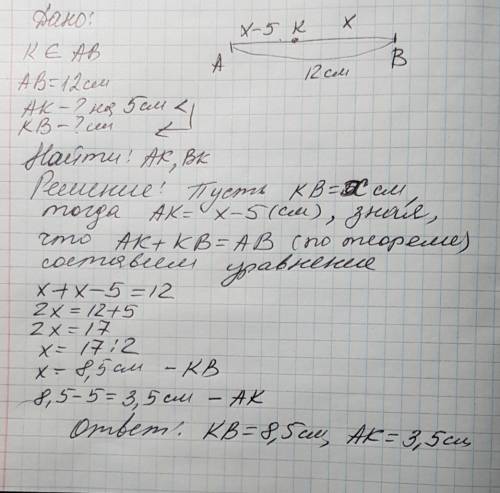 Дано:
x-5 K x
K ∈ AB
A B
12 см
AB=12см
AK-? на 5см <
KB-? см
Найти! AK, BK
Решение! Пусть KB=x см,
тогда AK= x-5 (см), зная,
что AK+KB=AB (по теореме)
составим уравнение
x+x-5=12
2x=12+5
2x=17
x= 17:2
x= 8,5см - KB
8,5-5=3,5см - AK
Ответ! KB=8,5см, AK=3,5см